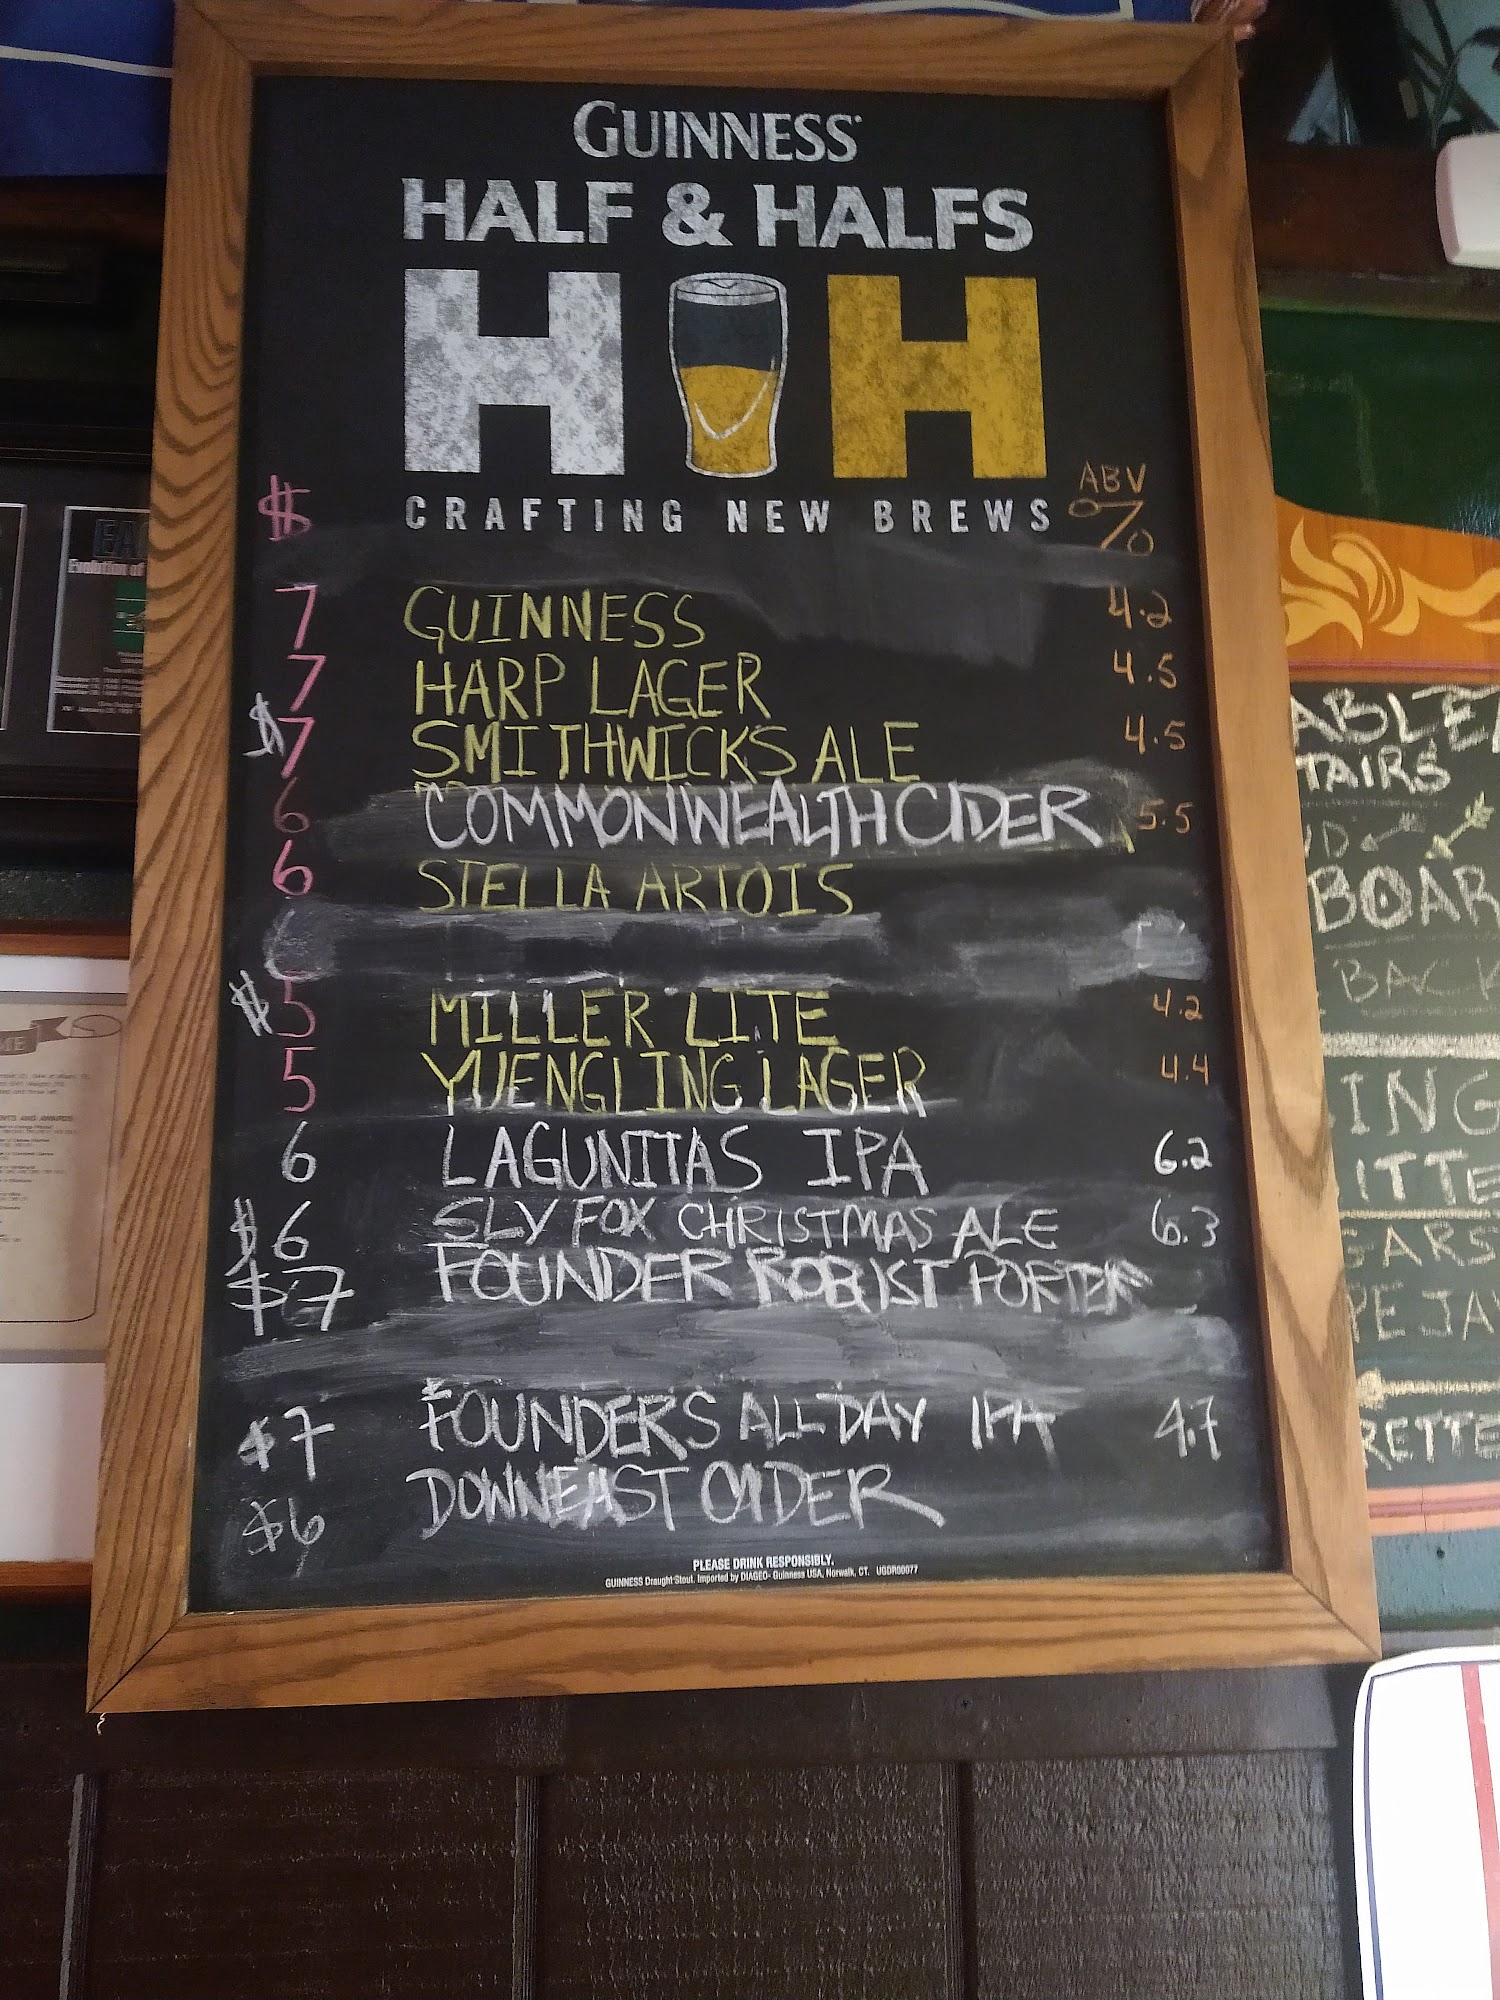 GUINNESS
HALF & HALFS
H H
CRAFTING NEW BREWS
$ ABV %
7 GUINNESS 4.2
7 HARP LAGER 4.5
$7 SMITHWICKS ALE 4.5
6 COMMONWEALTH CIDER 5.5
6 STELLA ARTOIS
$5 MILLER LITE 4.2
5 YUENGLING LAGER 4.4
6 LAGUNITAS IPA 6.2
$6 SLY FOX CHRISTMAS ALE 6.3
$7 FOUNDER ROBUST PORTER
$7 FOUNDERS ALL DAY IPA 4.7
$6 DOWNEAST CIDER
PLEASE DRINK RESPONSIBLY.
GUINNESS Draught Stout. Imported by DIAGEO- Guinness USA, Norwalk, CT. UGDR00077
TAIRS
BOAR
BACK
ING
ITTE
GARS
PE JA
RETTE